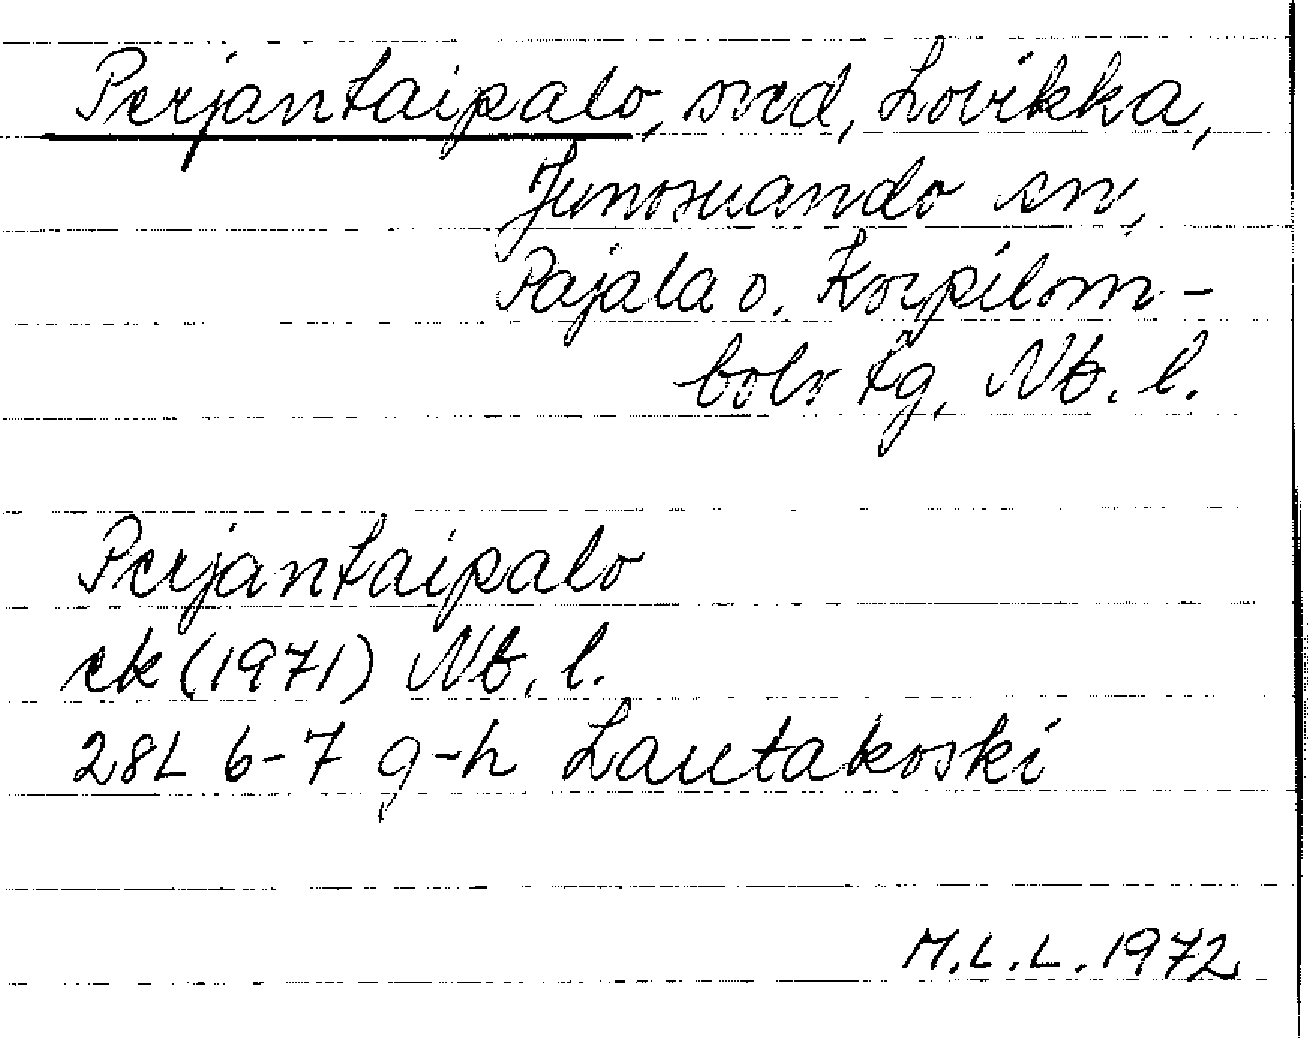 Perjantaipalo, sved, Lovikka,
Junosuando sn,
Pajala o. Korpilom-
bolo tg, Nb. l.
Perjantaipalo
ek (1971) Nb. l.
28L 6-7 g-h Lautakoski
M.L.L. 1972